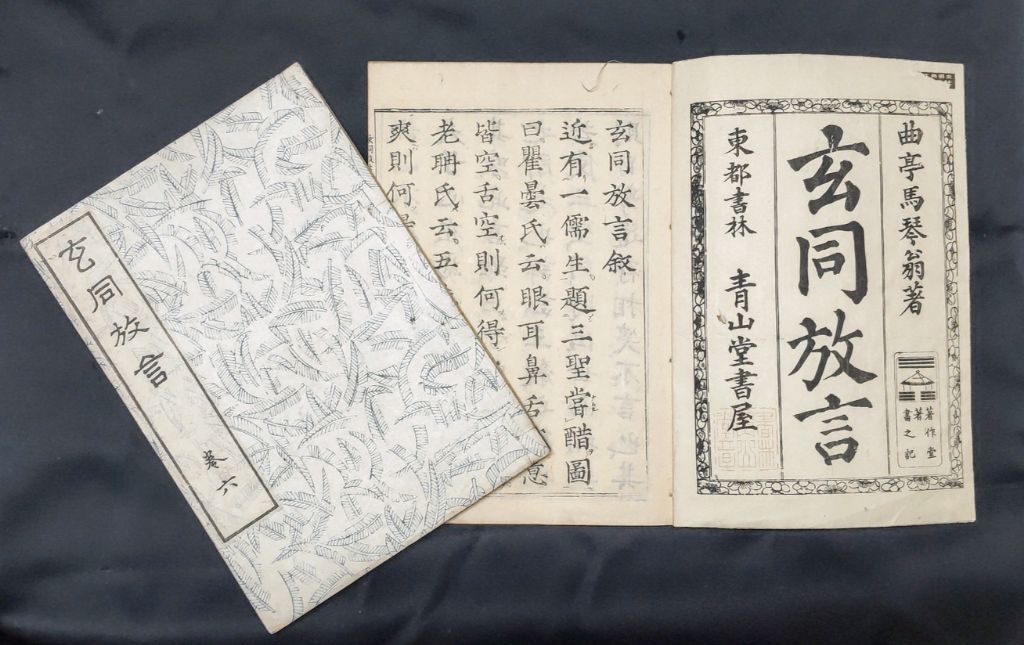 曲亭馬琴翁著
著作堂
著書之記
玄同放言
東都書林 青山堂書屋
玄同放言叙
近有一儒生。題三聖嘗醋圖
曰瞿曇氏云。眼耳鼻舌意
皆空。舌空。則何得
老聃氏云。五
爽則何
玄同放言
巻六